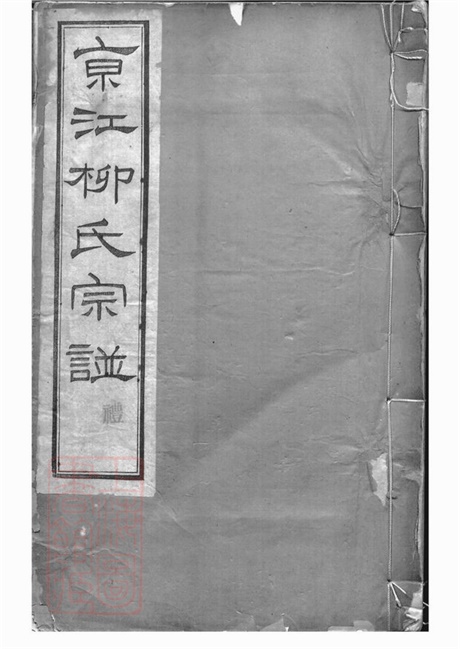 亰江柳氏宗譜
禮